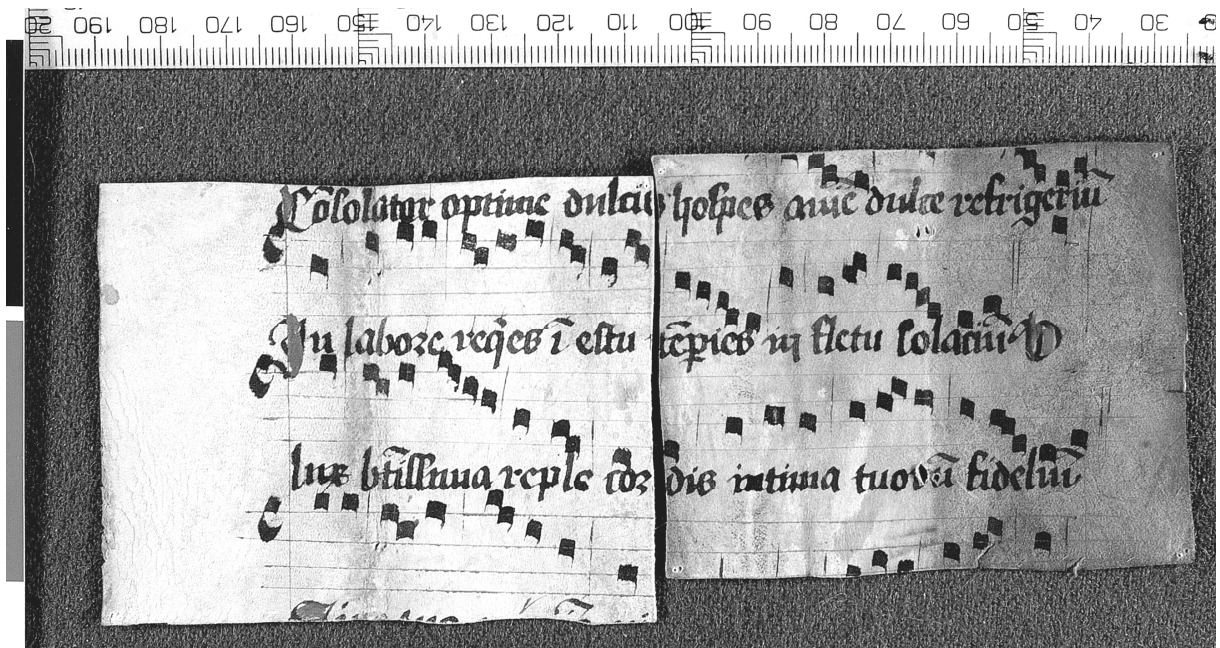 20 190 180 170 160 150 140 130 120 110 100 90 80 70 60 50 40 30
Cōsolator optime dulcis hospes aīe dulce refrigeriū
In labore reqͥes ī estu tēpies in fletu solaciū O
lux btīssima reple cordis intima tuoꝝ fideliū